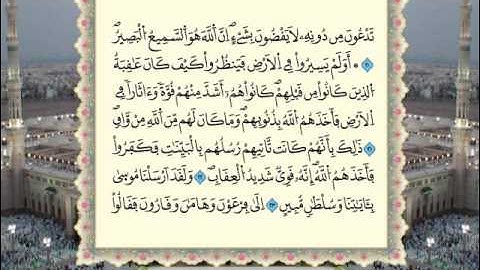 تَدْعُونَ مِن دُونِهِۦ لَا يَقْضُونَ بِشَےْءٍۖ اِنَّ اَللَّهَ هُوَ اَلسَّمِيعُ اُلْبَصِيرُۖ
٢٠ أَوَلَمْ يَسِيرُواْ فِے اِلَارْضِ فَيَنظُرُواْ كَيْفَ كَانَ عَٰقِبَةُ
اُلذِينَ كَانُواْ مِن قَبْلِهِمْ كَانُواْ هُمُۥٓ أَشَدَّ مِنْهُمْ قُوَّةٗ وَءَاثَاراٗ فِے
اِلَارْضِ فَأَخَذَهُمُ اُللَّهُ بِذُنُوبِهِمْ وَمَا كَانَ لَهُم مِّنَ اَللَّهِ مِنْ وَّاقٖۖ
٢١ ذَٰلِكَ بِأَنَّهُمْ كَانَت تَّأْتِيهِمْ رُسُلُهُم بِالْبَيِّنَٰتِ فَكَفَرُواْ
فَأَخَذَهُمُ اُللَّهُۖ إِنَّهُۥ قَوِيّٞ شَدِيدُ اُلْعِقَابِۖ ٢٢ وَلَقَدَ اَرْسَلْنَا مُوسَىٰ
بِـَٔايَٰتِنَا وَسُلْطَٰنٖ مُّبِينٍ ٢٣ اِلَىٰ فِرْعَوْنَ وَهَٰمَٰنَ وَقَٰرُونَ فَقَالُواْ